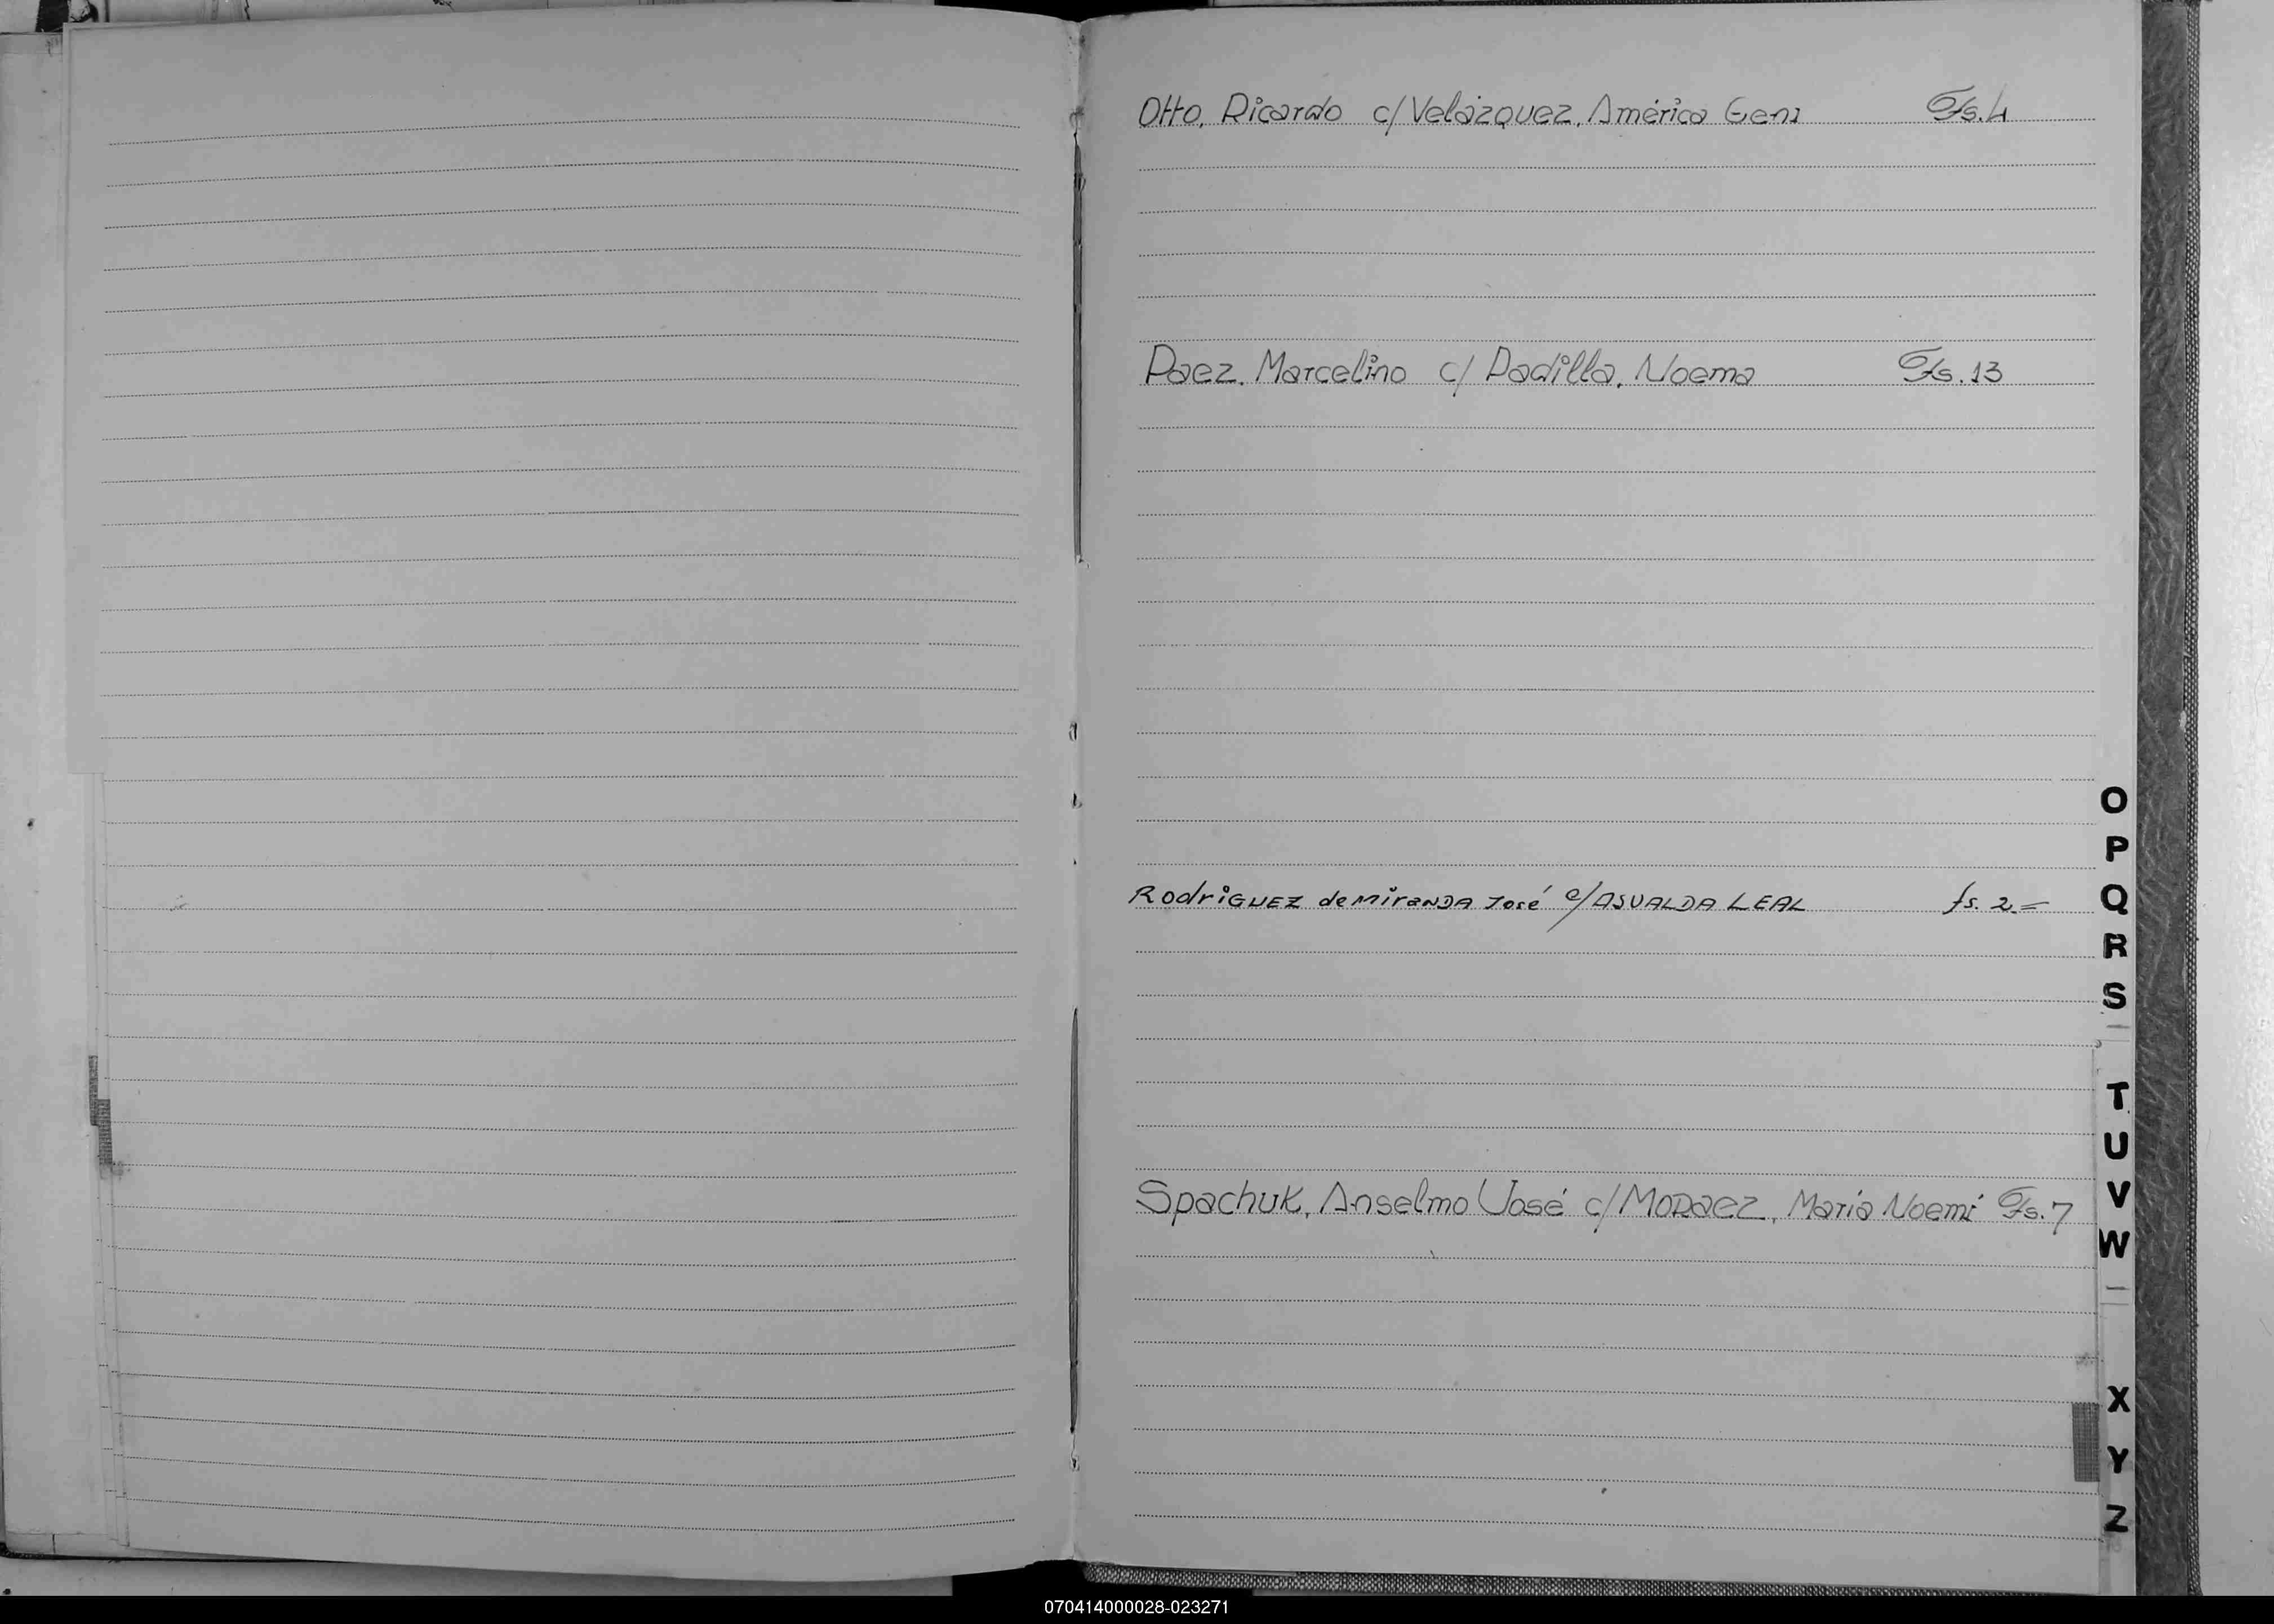 Otto, Ricardo c/ Velázquez, América Geni Fs. 4
Paez, Marcelino c/ Padilla, Noema Fs. 13
O
P
RodriGUEZ de MiraNDA José c/ ASVALDA LEAL fs. 2.=
Q
R
S
T
U
Spachuk, Anselmo José c/ MoPaez, María Noemí Fs. 7
V
W
X
Y
Z
070414000028-023271